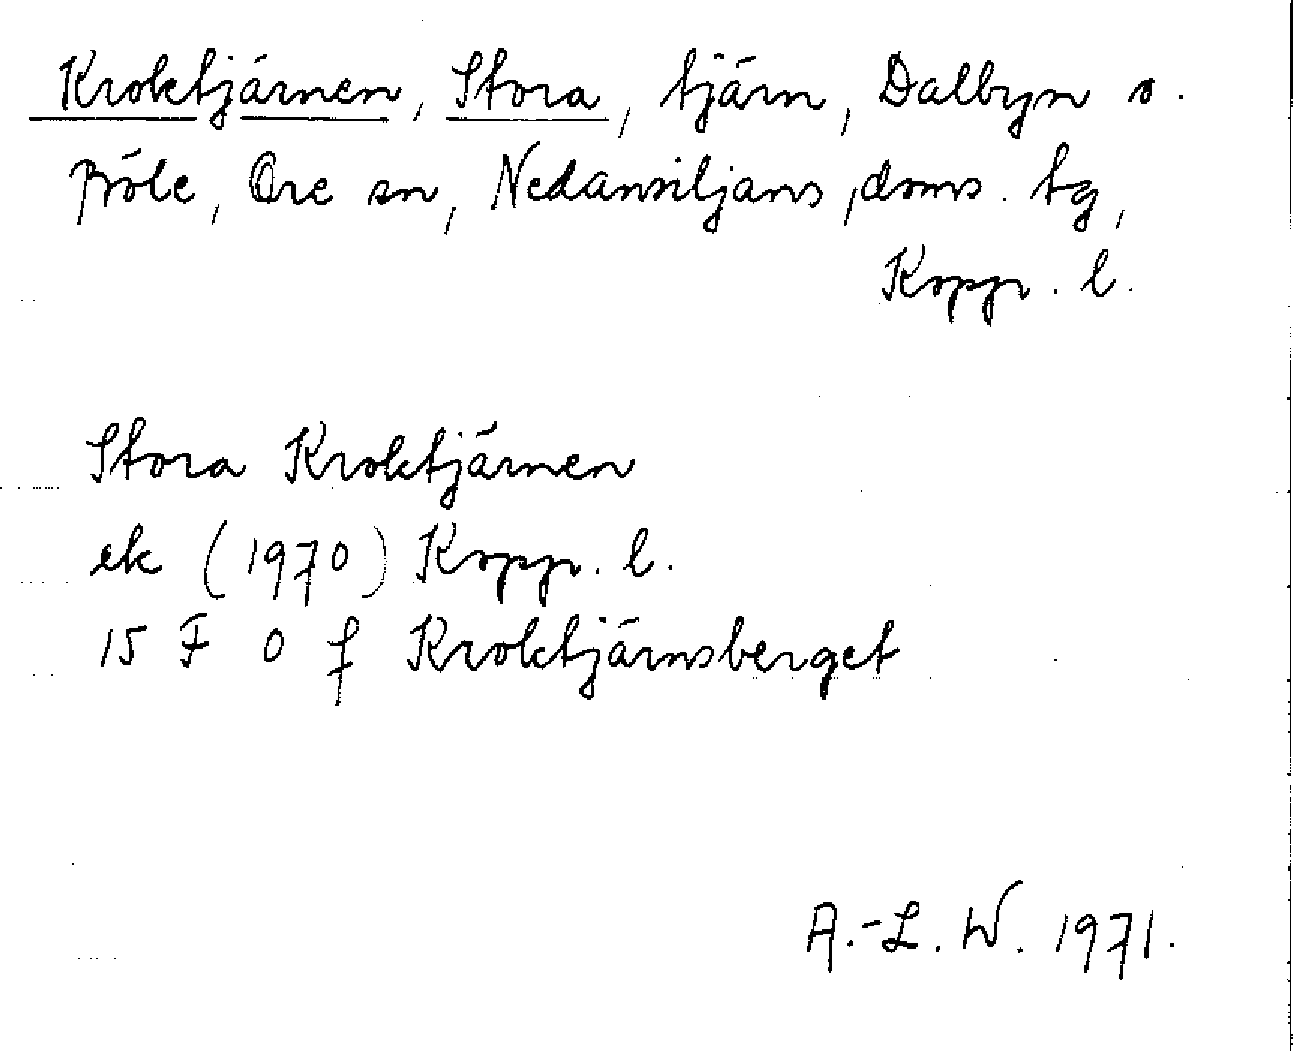 Kroktjärnen, Stora, tjärn, Dalbyn o.
Böle, Ore sn, Nedansiljans doms. tg,
Kopp. l.
Stora Kroktjärnen
ek (1970) Kopp. l.
15 F 0 f Kroktjärnsberget
A.-L. W. 1971.